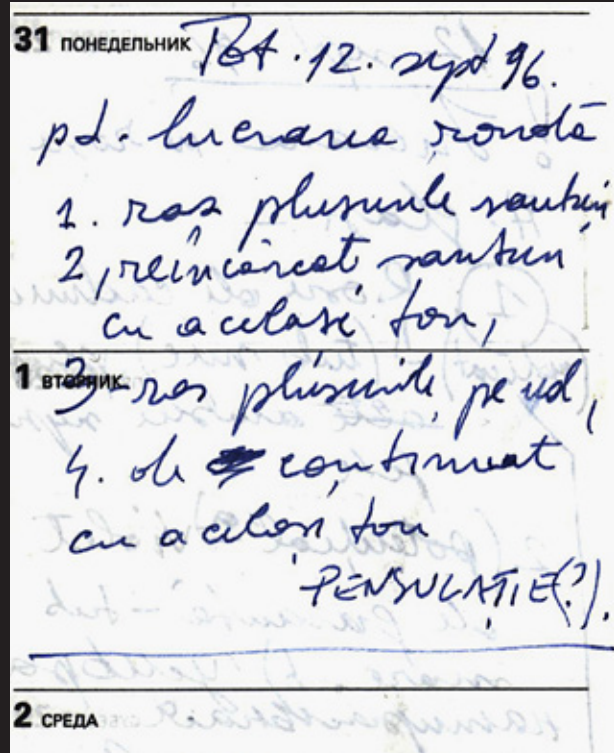 31 ПОНЕДЕЛЬНИК Pet. 12. sept 96.
pt. lucrarea rondă
1. ras plusurile santuri
2, reîncărcat santuri
cu același ton,
1 ВТОРНИК 3- ras plusurile pe ud,
4. de continuat
cu același ton
PENSULAȚIE(?).
2 СРЕДА